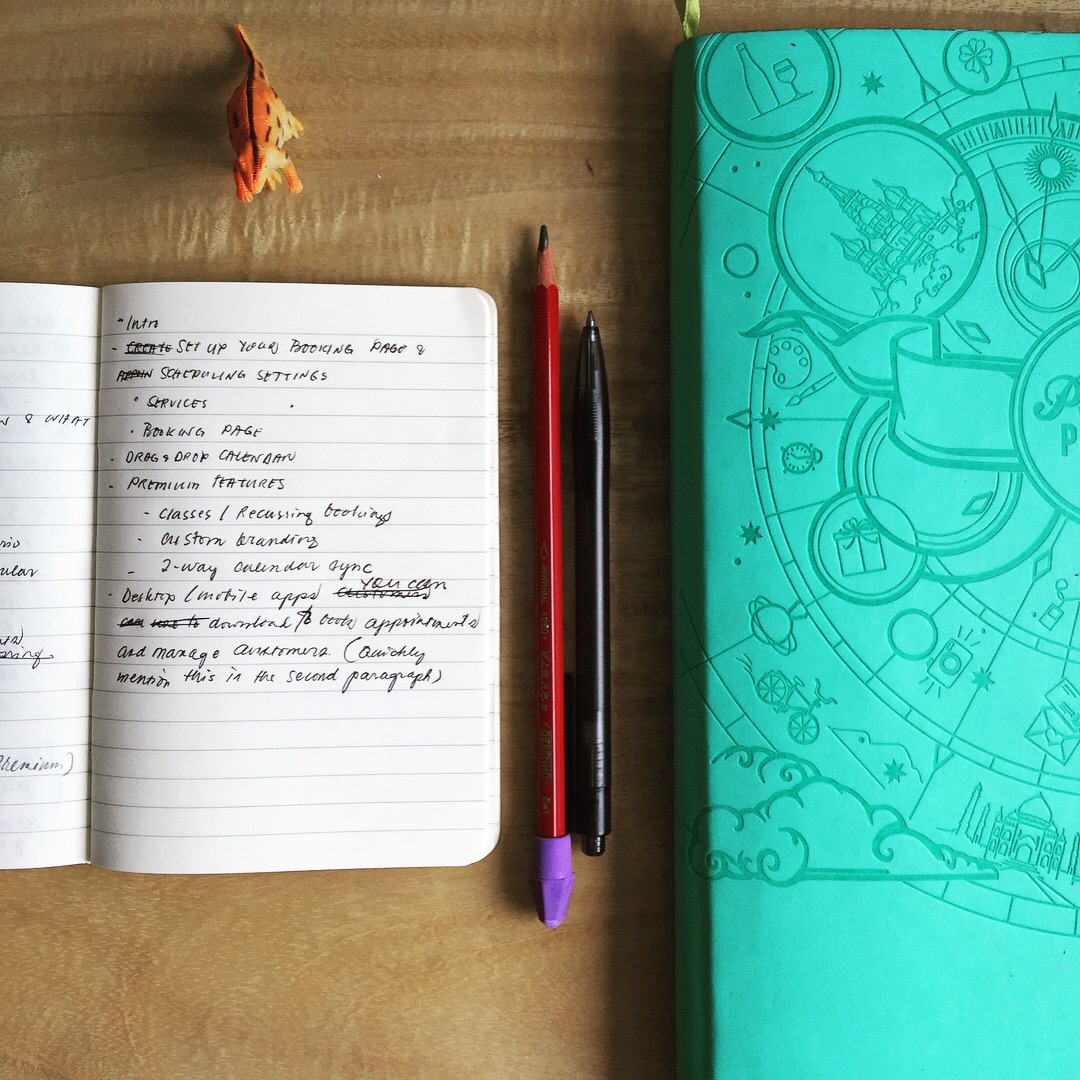 N & WHAT
Premium)
" Intro
- CREATE SET UP YOUR BOOKING PAGE &
SCHEDULING SETTINGS
• SERVICES
• BOOKING PAGE
- DRAG & DROP CALENDAR
- PREMIUM FEATURES
- Classes / Recurring bookings
- Custom branding
- 2-way calendar sync
- Desktop / mobile apps customers you can
can use to download to book appointments
and manage customers. (Quickly
mention this in the second paragraph)
PORTUGAL · 260 · VIARCO <DESENHO>
P